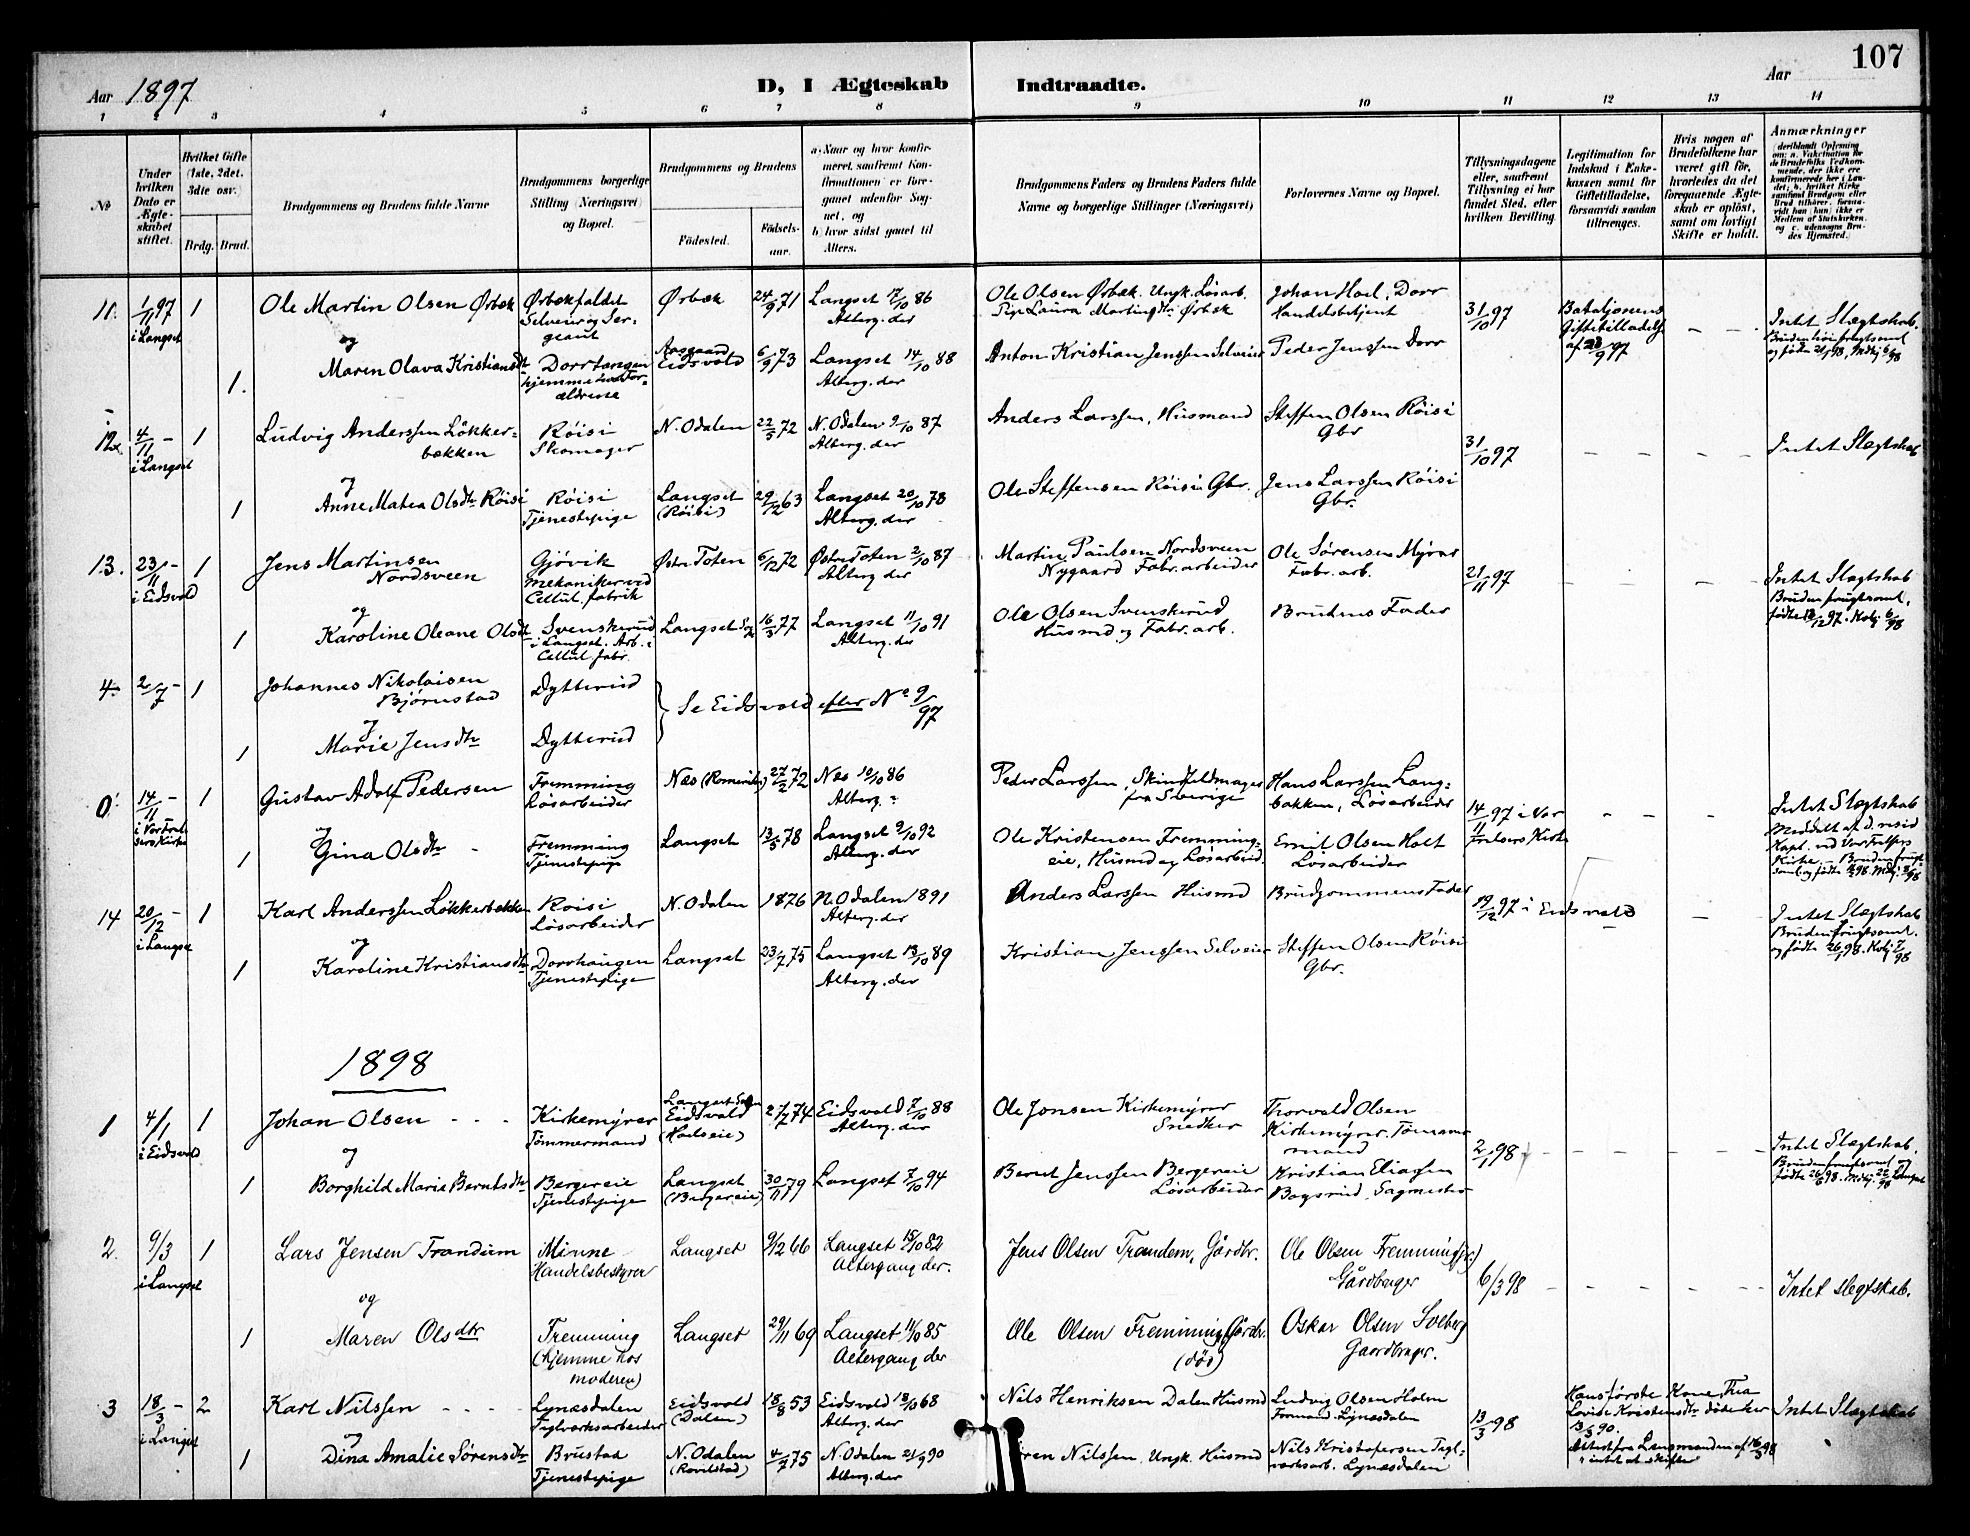 107
Aar 1897
D, I Ægteskab Indtraadte.
Aar
1 2 3 4 5 6 7 8 9 10 11 12 13 14
No
Under hvilken Dato er Ægteskabet stiftet.
Hvilket Gifte (1ste, 2det, 3die osv.)
Brdg. Brud.
Brudgommens og Brudens fulde Navne
Brudgommens borgerlige Stilling (Næringsvei) og Bopæl.
Brudgommens og Brudens
Födested. Födsels-aar.
a) Naar og hvor konfirmeret, saafremt Konfirmationen er foregaaet udenfor Sognet, og
b) hvor sidst gaaet til Alters.
Brudgommens Faders og Brudens Faders fulde Navne og borgerlige Stillinger (Næringsvei)
Forlovernes Navne og Bopæl.
Tillysningsdagene eller, saafremt Tillysning ei har fundet Sted, efter hvilken Bevilling.
Legitimation for Indskud i Enkekassen samt for Giftetilladelse, forsaavidt saadan tiltrænges.
Hvis nogen af Brudefolkene har været gift för, hvorledes da det foregaaende Ægteskab er oplöst, samt om lovligt Skifte er holdt.
Anmærkninger
11. 1/11 97 i Langset 1 Ole Martin Olsen Ørbæk Ørbækfaldet Selveier og Sergeant Ørbæk 24/9 71 Langset 17/10 86 Alterg. der Ole Olsen Ørbæk. Ungk. Løsarb. Pige Laura Martinsdtr Ørbæk Johan Hoel, Dorr Handelsbetjent 31/10 97 Bataljonens Giftetilladelse af 28/9 97 - - Intet Slægtskab.
og
1. Maren Olava Kristiansdtr Dorrtangen hjemme hos Forældrene Aasgaard Eidsvold 6/9 73 Langset 14/10 88 Alterg. der Anton Kristian Jenssen Selveier Peder Jenssen Dorr
12. 4/11 - i Langset 1 Ludvig Anderssen Løkkerbakken Røisi Skomager N. Odalen 22/5 72 N. Odalen 9/10 87 Alterg. der Anders Larssen, Husmand Steffen Olsen Røisi Gbr 31/10 97 - - - - Intet Slægtskab
og
1 Anne Matea Olsdtr Røisi Røisi Tjenestepige Langset (Røisi) 29/12 63 Langset 20/10 78 Alterg. der Ole Steffensen Røisi Gbr. Jens Larssen Røisi Gbr.
13. 23/11 - i Eidsvold 1 Jens Martinsen Nordsveen Gjøvik Mekaniker ved Cellul. fabrik Østre Toten 6/12 72 Østre Toten 2/10 87 Alterg. der Martin Paulsen Nordsveen Nygaard Fabr. arbeider Ole Sørensen Myrer Fabr. arb. 21/11 97 - - - Intet Slægtskab
og
1 Karoline Oleane Olsdtr Svenskerud i Langset. Arb. i Cellul. fabr. Langset 16/3 77 Langset 11/10 91 Alterg. der Ole Olsen Svenskerud Husmd og Fabr. arb. Brudens Fader
4 2/7 - 1 Johannes Nikolaisen Bjørnstad Dytterud Se Eidsvold efter No 9/97
og
1 Marie Jensdtr Dytterud
0. 14/11 - i Vor Frelsers Kirke 1 Gustav Adolf Pedersen Fremming Løsarbeider Næs (Romerike) 27/2 72 Næs 10/10 86 Alterg. Peder Larssen, Skindfeldmager fra Sverige Hans Larssen Langbakken, Løsarbeider 14/11 97 i Vor Frelsers Kirke - - - Intet Slægtskab
og
1 Gina Olsdtr Fremming Tjenestepige Langset 13/5 78 Langset 9/10 92 Alterg. der Ole Kristensen Fremmingeie, Husmd og Løsarbeid. Emil Olsen Holt Løsarbeider
14 20/12 - i Langset 1 Karl Anderssen Løkkerbakken Røisi Løsarbeider N. Odalen 1876 N. Odalen 1891 Alterg. der Anders Larssen Husmd Brudgommens Fader 19/12 97 i Eidsvold - - Intet Slægtskab
og
1 Karoline Kristiansdtr Dorrhaugen Tjenestepige Langset 23/7 75 Langset 13/10 89 Alterg. der Kristian Jenssen Selveier Steffen Olsen Røisi Gbr.
1898
1 4/1 i Eidsvold 1 Johan Olsen - - - Kirkemyrer Tømmermand Langset Sogn Eidsvold (Hoelseie) 27/7 74 Eidsvold 7/10 88 Alterg. der Ole Jonsen Kirkemyrer Snedker Thorvald Olsen Kirkemyrer. Tømmermand 2/1 98 - - - - Intet Slægtskab.
og
1 Borghild Marie Berntsdtr Bergereie Tjenestepige Langset (Bergereie) 30/11 79 Langset 7/10 94 Bernt Jenssen Bergereie Løsarbeider Kristian Eliassen Bogsrud. Sagmester
2. 9/3 i Langset 1 Lars Jensen Trandum Minne Handelsbestyrer Langset 9/12 66 Langset 15/10 82 Altergang der. Jens Olsen Trandem, Gårdbr. Ole Olsen Fremming (gr.) Gårdbruger 6/3 98 - - - - Intet slegtskab.
og
1 Maren Olsdtr Fremming (hjemme hos moderen) Langset 29/11 69 Langset 11/10 85 Altergang der Ole Olsen Fremming, Gårdbr. (død) Oskar Olsen Solberg Gaardbruger.
3 18/3 - i Langset 2 Karl Nilssen - - - - Lynæsdalen Teglverksarbeider Eidsvold (Dalen) 18/8 53 Eidsvold 18/10 68 Alterg. der Nils Henriksen Dalen Husmd Ludvig Olsen Holm Formand. Lynæsdalen 13/3 98 Hans første Kone, Lovise Kristensdtr døde her 13/5 90. Attest fra Lensmanden af 16/3 98 intet at skifte Intet Slægtskab
og
1 Dina Amalie Sørensdtr Brustad Tjenestepige N. Odalen 4/7 75 N. Odalen 21/9 90 Alterg. der Nilssen. Ungk. Husmd Nils Kristofersen Teglverksarb. Lynæsdalen